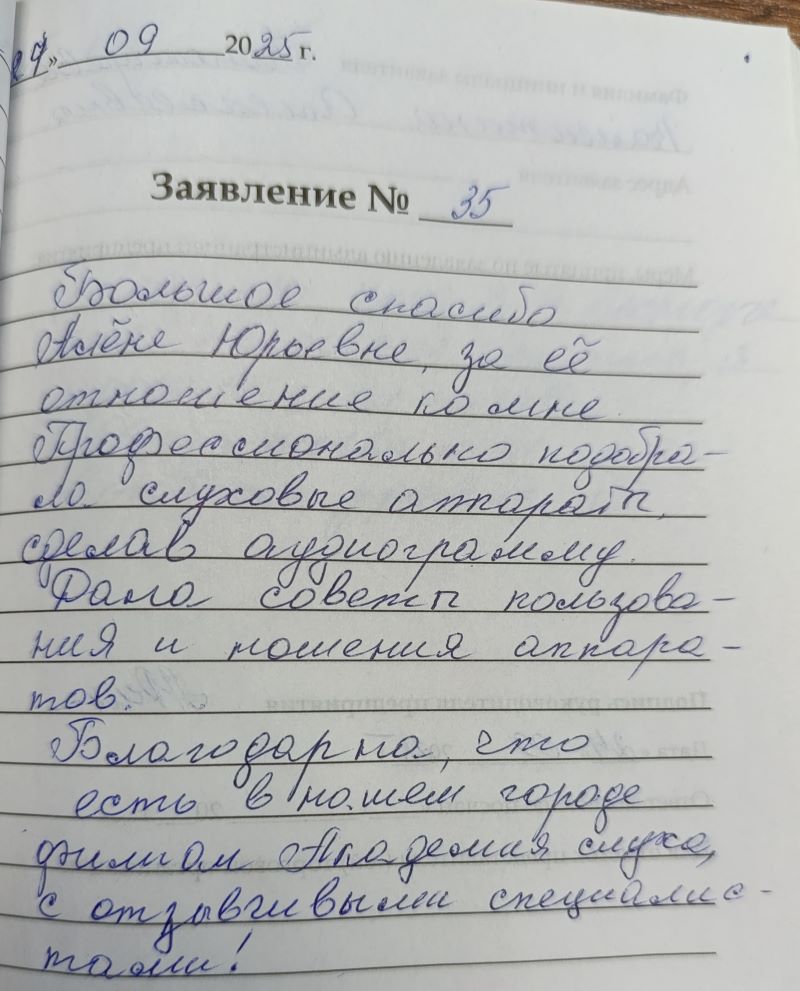 » 09 2025 г.
Заявление № 35
Большое спасибо
Алёне Юрьевне, за её
отношение ко мне.
Профессионально подобра-
ла слуховые аппараты,
сделав аудиограмму.
Дала советы пользова-
ния и ношения аппара-
тов.
Благодарна, что
есть в нашем городе
филиал Академия слуха,
с отзывчивыми специалис-
тами!